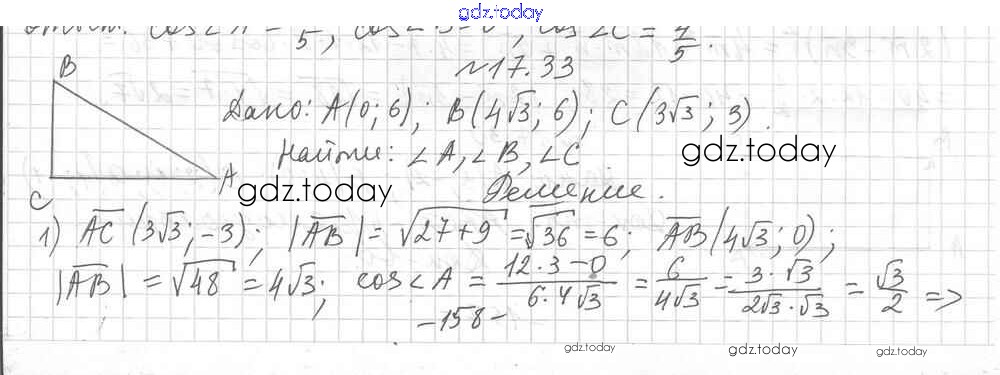 gdz.today
Ответ: cos∠A = 5, cos∠B = 0, cos∠C = 4/5
№17.33
B
Дано: A(0; 6); B(4√3; 6); C(3√3; 3).
Найти: ∠A, ∠B, ∠C
gdz.today
A
gdz.today
Решение.
C
1) AC (3√3; -3); |AB| = √27+9 = √36 = 6; AB(4√3; 0);
|AB| = √48 = 4√3; cos∠A = 12·3-0/6·4√3 = 6/4√3 = 3·√3/2√3·√3 = √3/2 =>
-158-
gdz.today gdz.today gdz.today